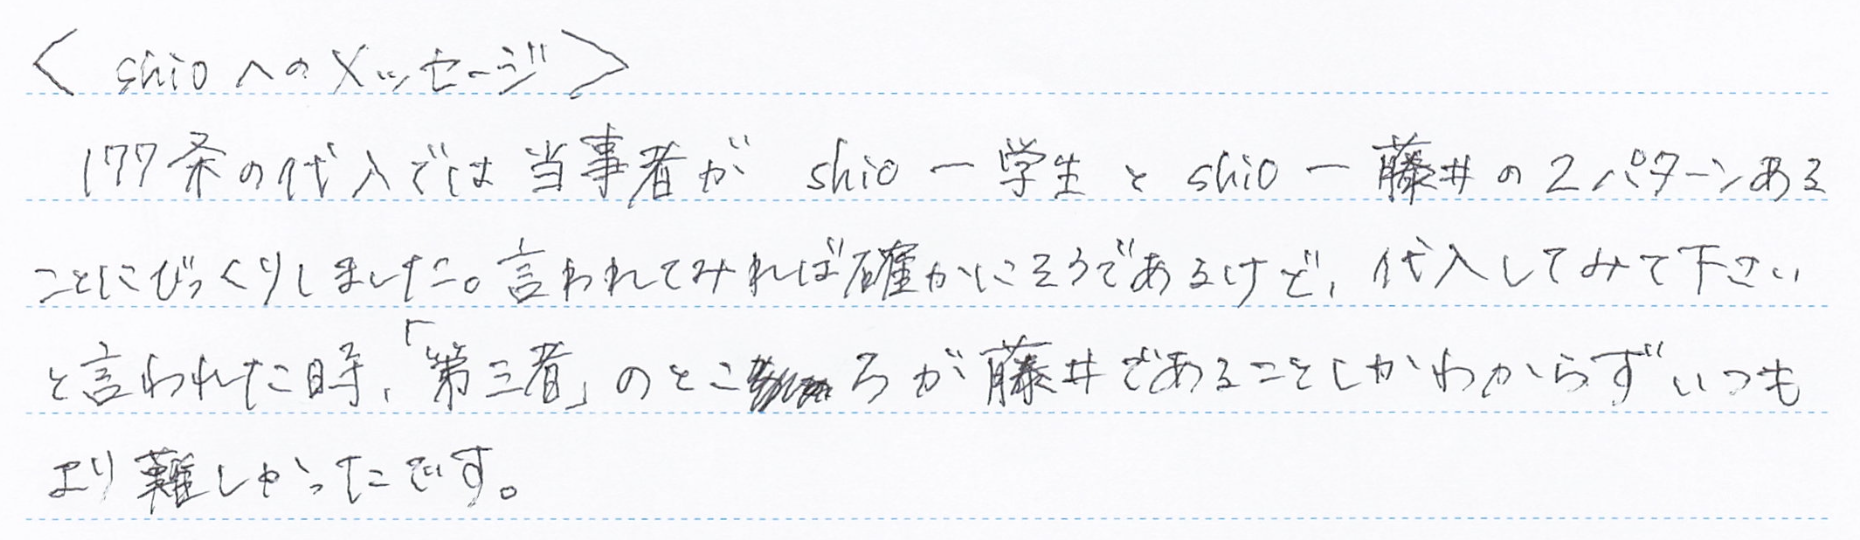 ＜shioへのメッセージ＞
177条の代入では当事者が shio ー 学生 と shio ー 藤井の2パターンある
ことにびっくりしました。言われてみれば確かにそうであるけど、代入してみて下さい
と言われた時、「第三者」のところが藤井であることしかわからずいつも
より難しかったです。